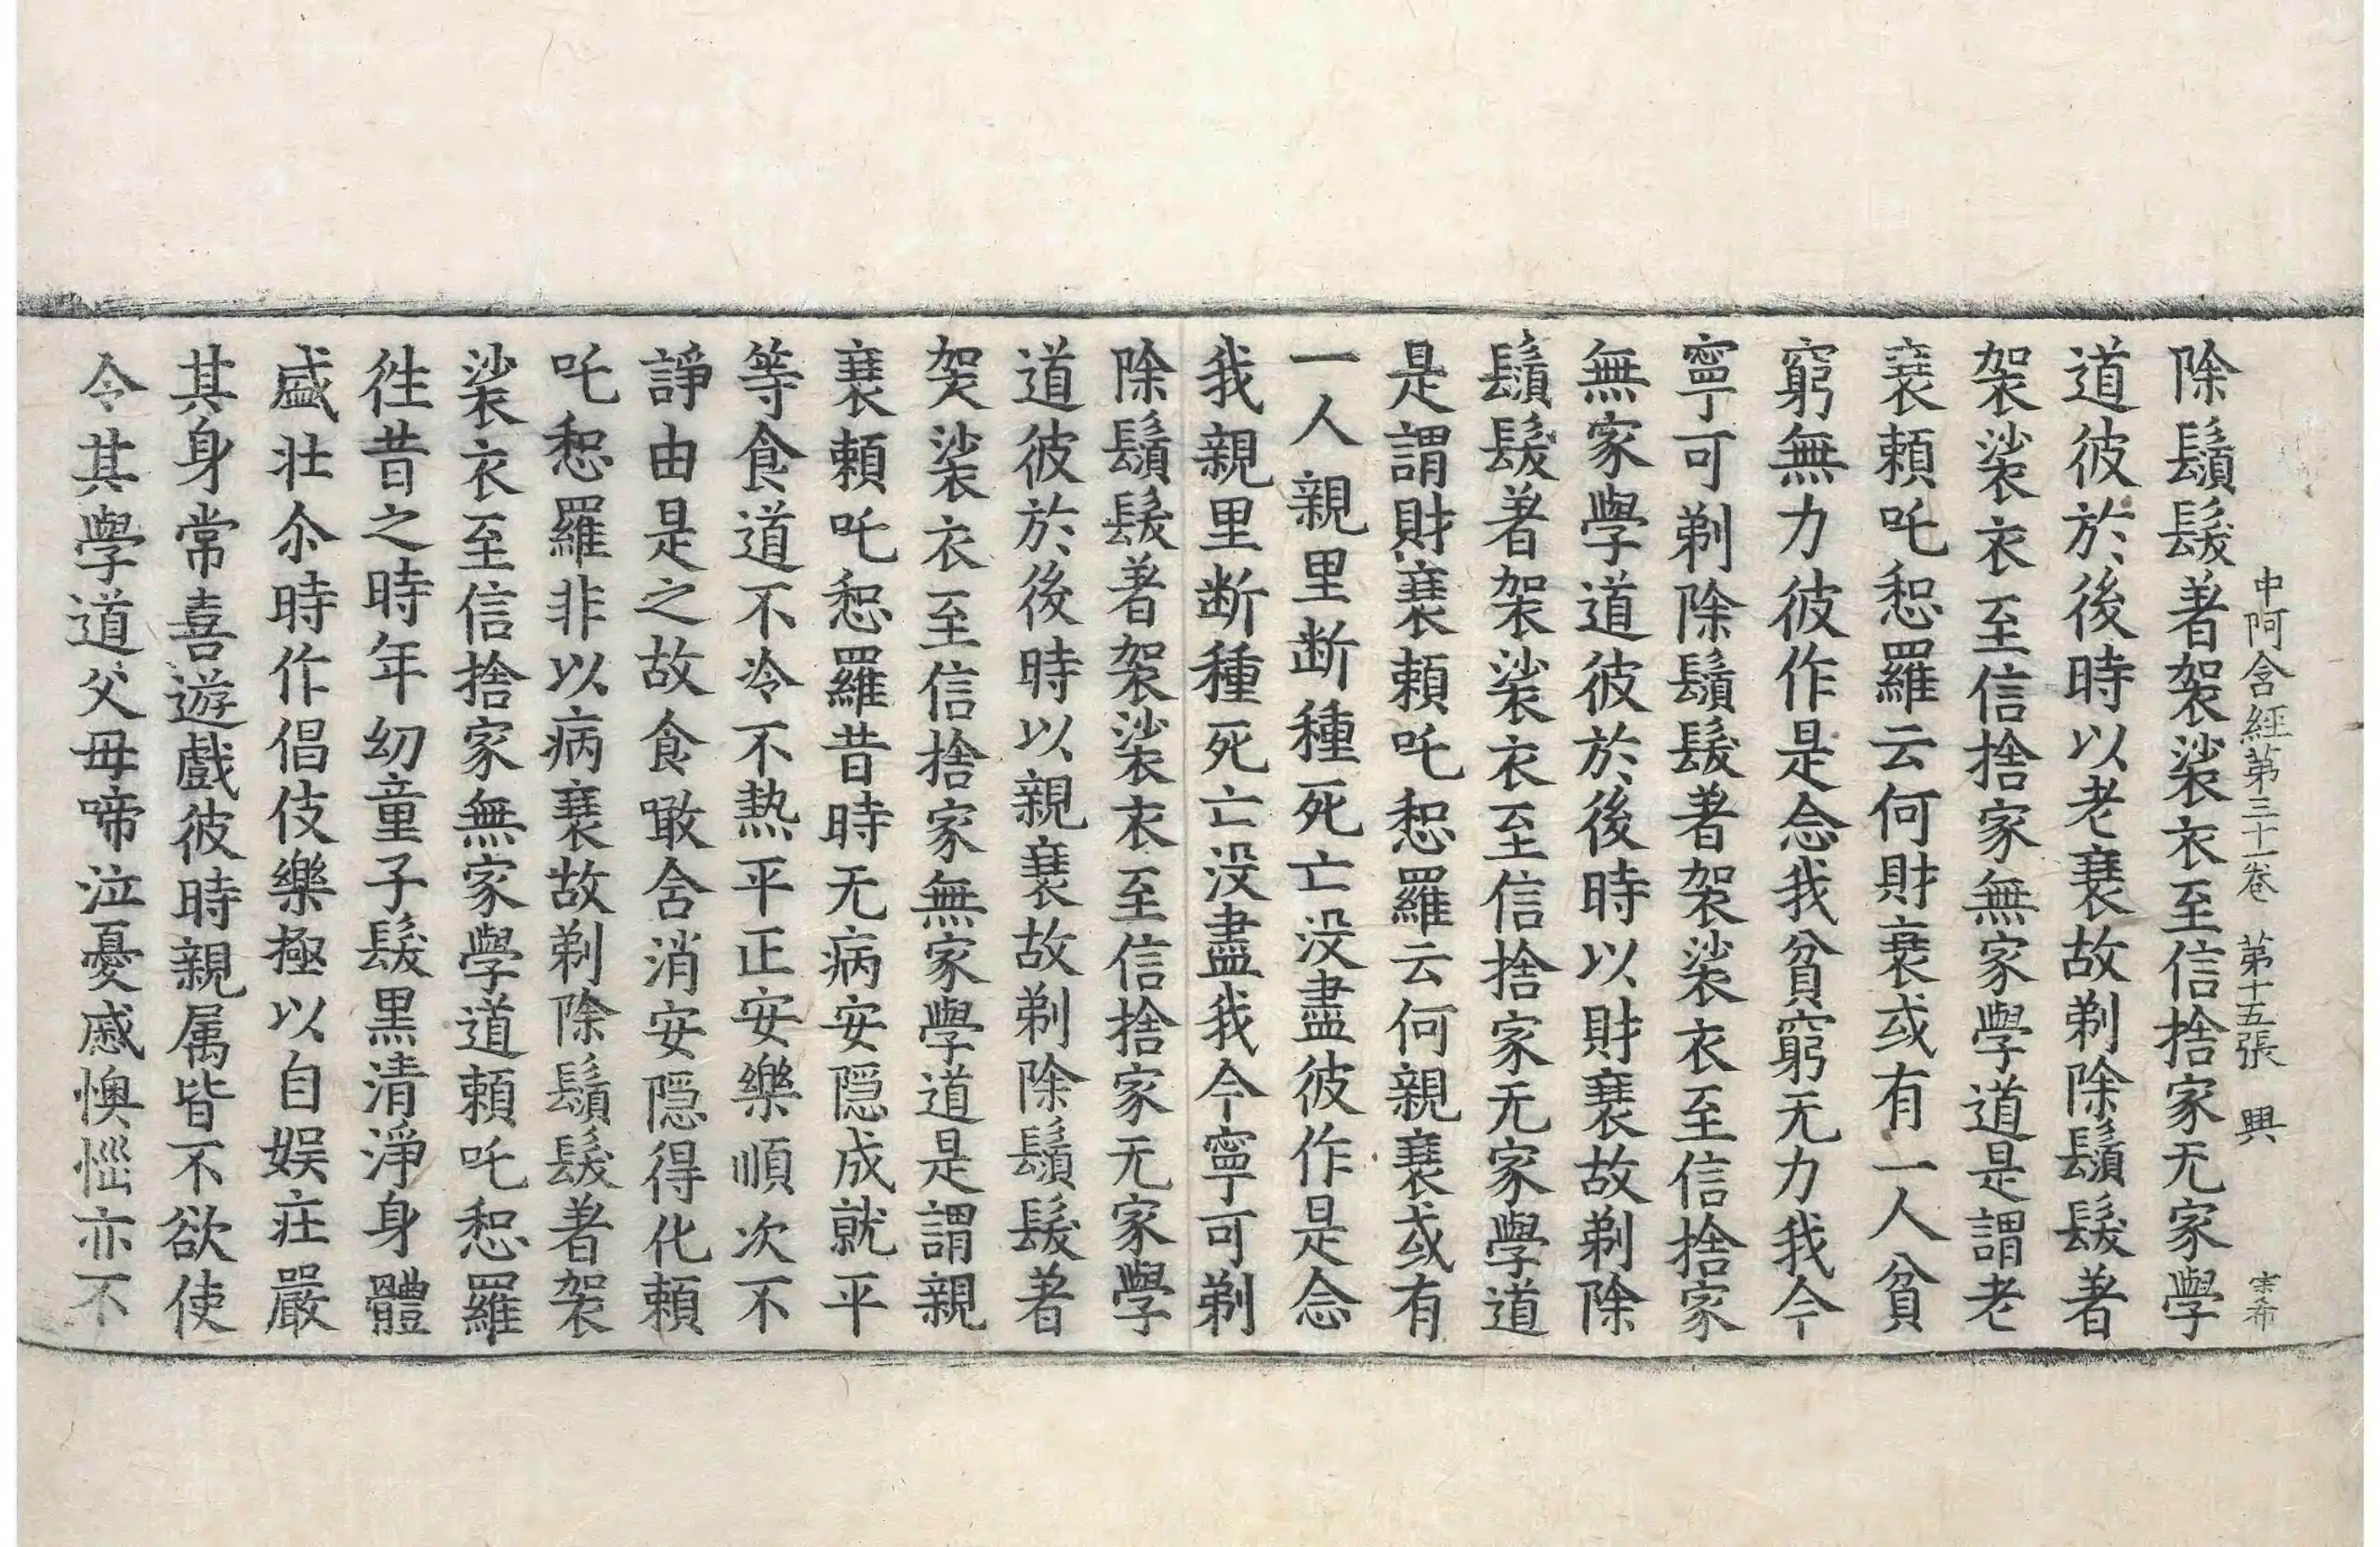 中阿含經第三十一卷 第十五張 興 宗希
除鬚髮著袈裟衣至信捨家无家學
道彼於後時以老衰故剃除鬚髮著
袈裟衣至信捨家無家學道是謂老
衰賴吒惒羅云何財衰或有一人貧
窮無力彼作是念我貧窮无力我今
寧可剃除鬚髮著袈裟衣至信捨家
無家學道彼於後時以財衰故剃除
鬚髮著袈裟衣至信捨家无家學道
是謂財衰賴吒惒羅云何親衰或有
一人親里断種死亡没盡彼作是念
我親里断種死亡没盡我今寧可剃
除鬚髮著袈裟衣至信捨家无家學
道彼於後時以親衰故剃除鬚髮著
袈裟衣至信捨家無家學道是謂親
衰賴吒惒羅昔時无病安隠成就平
等食道不冷不熱平正安樂順次不
諍由是之故食噉含消安隠得化賴
吒惒羅非以病衰故剃除鬚髮著袈
裟衣至信捨家無家學道賴吒惒羅
徃昔之時年幼童子髮黒清淨身體
盛壯尒時作倡伎樂極以自娱莊嚴
其身常喜遊戲彼時親属皆不欲使
令其學道父母啼泣憂慼懊惱亦不